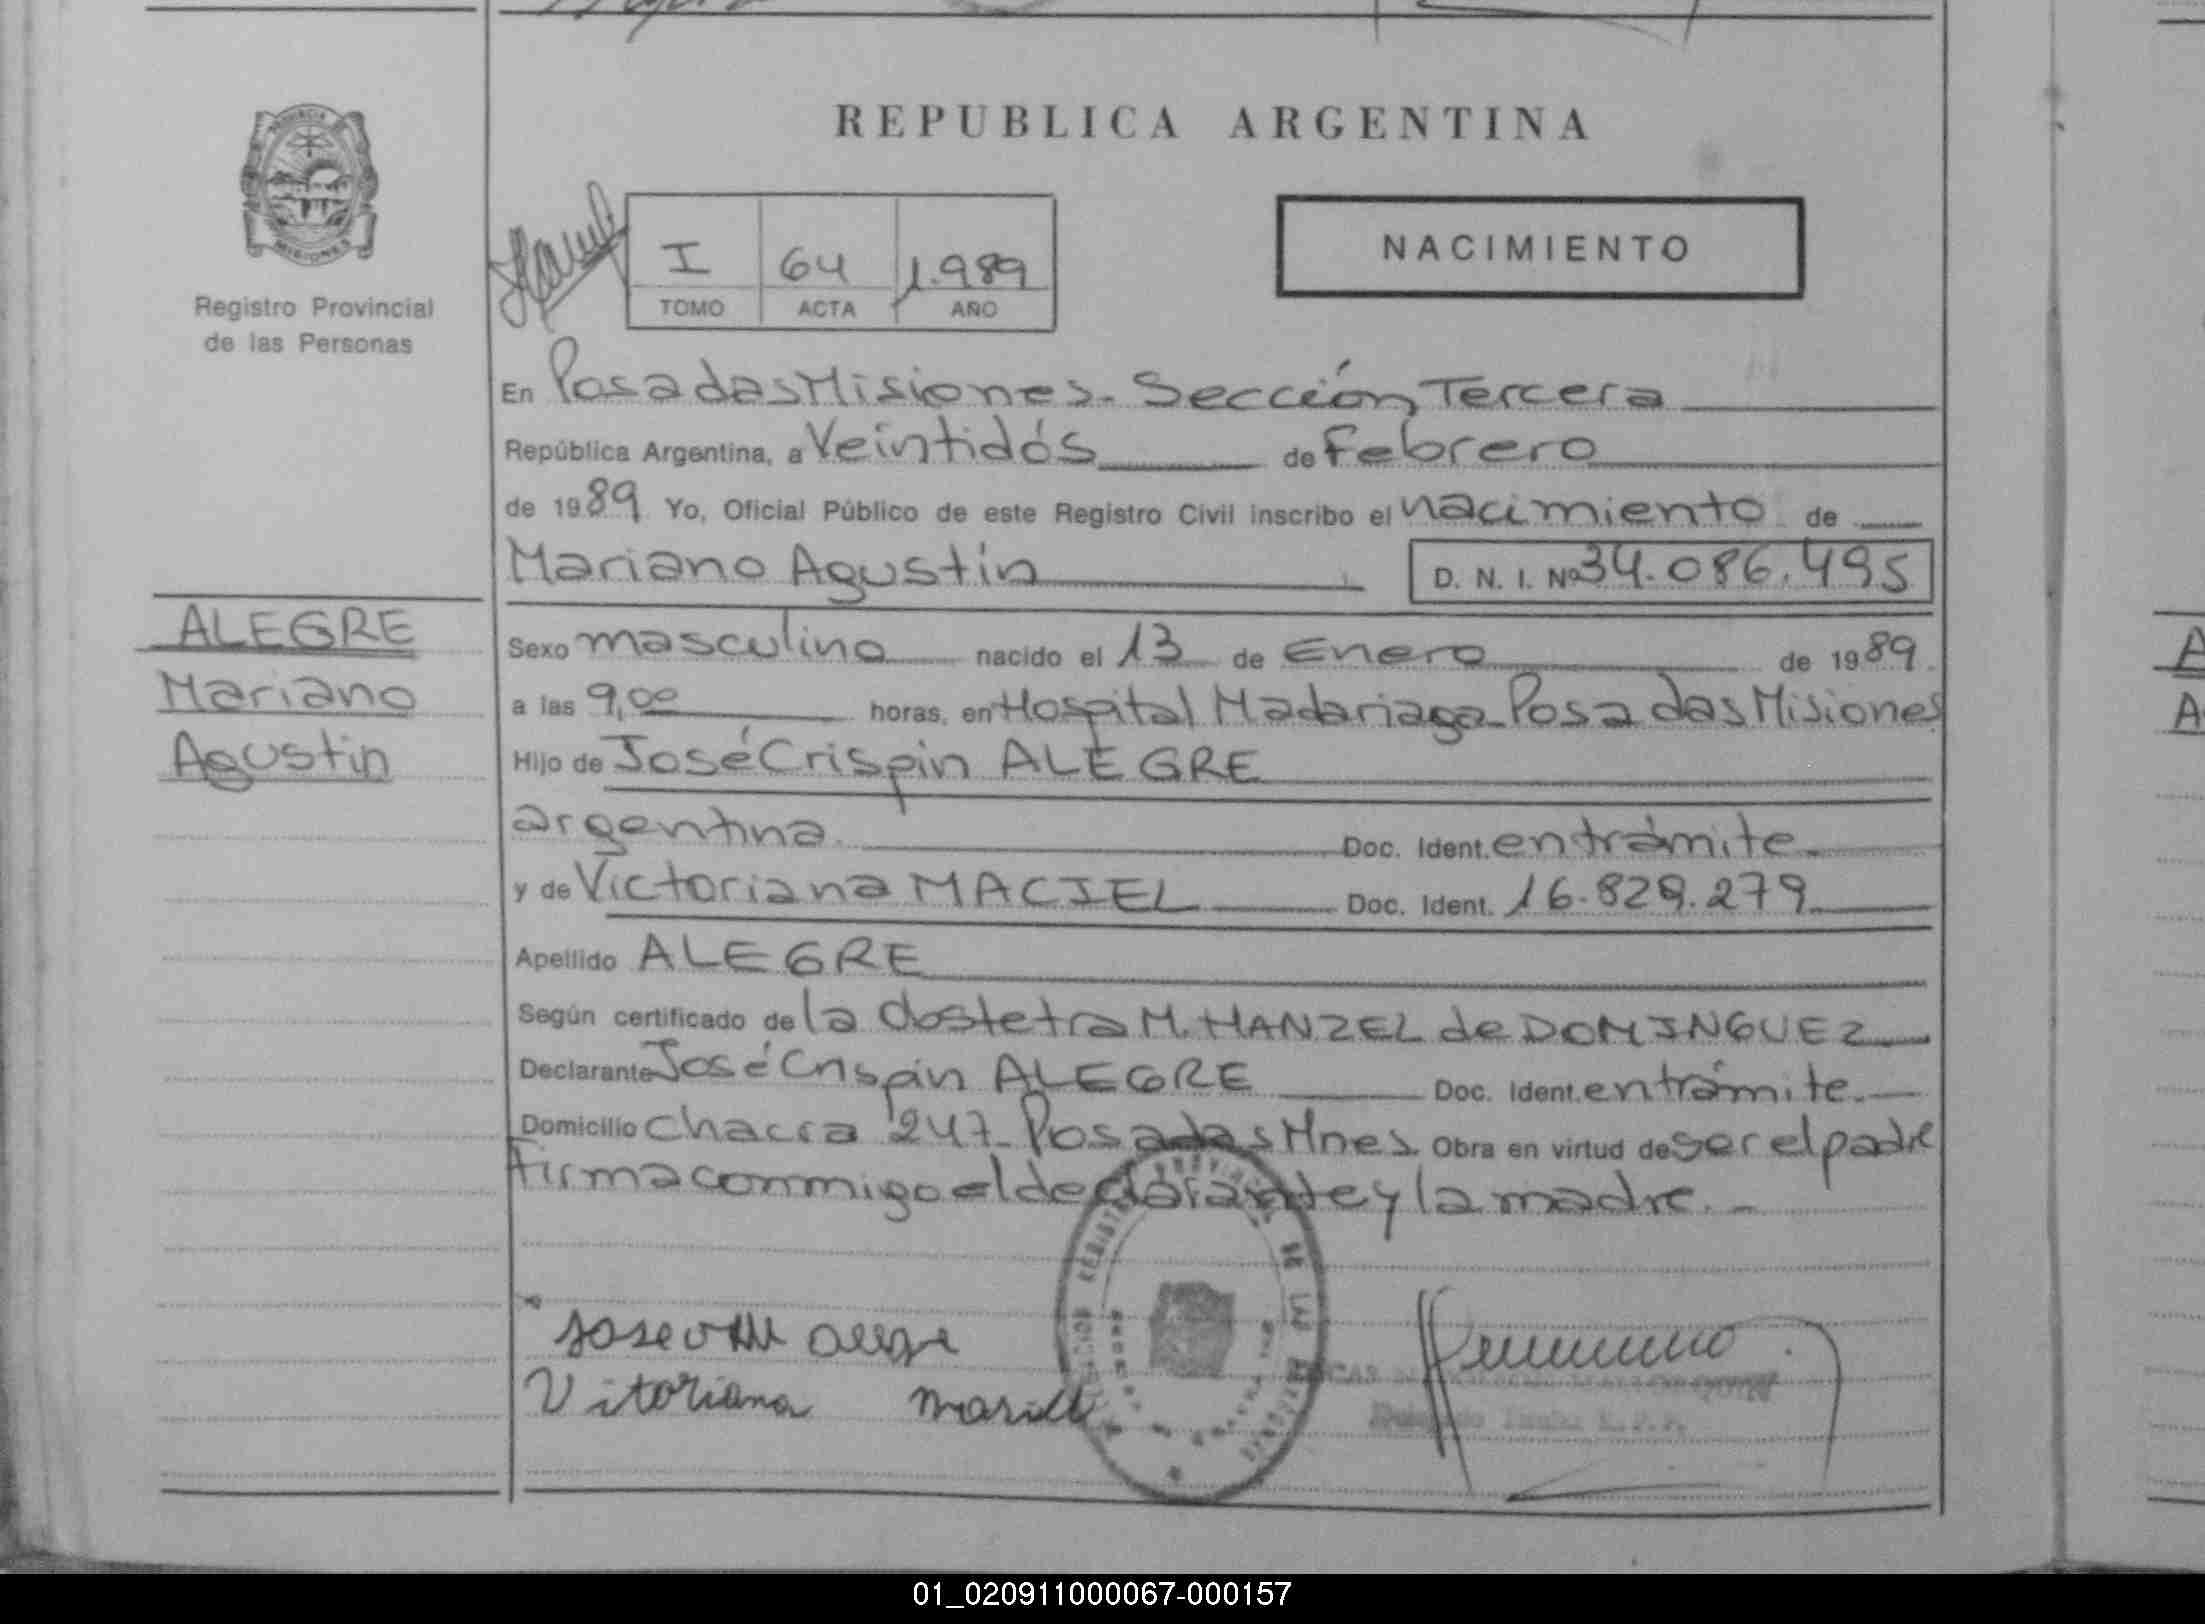 REPUBLICA ARGENTINA
PROVINCIA
MISIONES
Registro Provincial
de las Personas
I 64 1.989
TOMO ACTA AÑO
NACIMIENTO
En Posadas Misiones. Sección Tercera
República Argentina, a Veintidós de Febrero
de 1989 Yo, Oficial Público de este Registro Civil inscribo el nacimiento de
Mariano Agustín D. N. I. Nº 34.086.495
ALEGRE
Mariano
Agustin
Sexo masculino nacido el 13 de Enero de 1989
a las 9,00 horas, en Hospital Madariaga Posadas Misiones
Hijo de José Crispín ALEGRE
argentina. Doc. Ident. en trámite.
y de Victoriana MACIEL Doc. Ident. 16.829.279
Apellido ALEGRE
Según certificado de la obstetra M. HANZEL de DOMINGUEZ
Declarante José Crispín ALEGRE Doc. Ident. en trámite.
Domicilio Chacra 247 Posadas Mnes. Obra en virtud de ser el padre
firma conmigo el declarante y la madre.
Jose alegre
Vitoriana
01_020911000067-000157